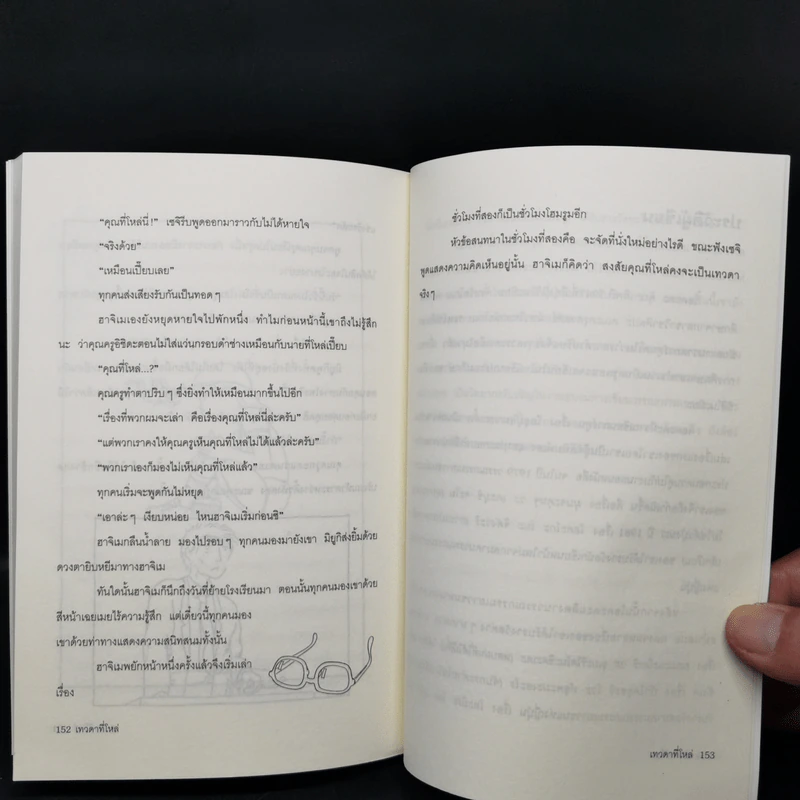 “คุณที่โหล่นี่!” เซจิรีบพูดออกมาราวกับไม่ได้หายใจ
“จริงด้วย”
“เหมือนเปี๊ยบเลย”
ทุกคนส่งเสียงรับกันเป็นทอดๆ
ฮาจิเมเองยังหยุดหายใจไปพักหนึ่ง ทำไมก่อนหน้านี้เขาถึงไม่รู้สึก
นะ ว่าคุณครูอิชิดะตอนไม่ใส่แว่นกรอบดำช่างเหมือนกับนายที่โหล่เปี๊ยบ
“คุณที่โหล่...?”
คุณครูทำตาปริบๆ ซึ่งยิ่งทำให้เหมือนมากขึ้นไปอีก
“เรื่องที่พวกผมจะเล่า คือเรื่องคุณที่โหล่นี่ล่ะครับ”
“แต่พวกเราคงให้คุณครูเห็นคุณที่โหล่ไม่ได้แล้วล่ะครับ”
“พวกเราเองก็มองไม่เห็นคุณที่โหล่แล้ว”
ทุกคนเริ่มจะพูดกันไม่หยุด
“เอาล่ะๆ เงียบหน่อย ไหนฮาจิเมเริ่มก่อนซิ”
ฮาจิเมกลืนน้ำลาย มองไปรอบๆ ทุกคนมองมายังเขา มิยูกิส่งยิ้มด้วย
ดวงตายิบหยีมาทางฮาจิเม
ทันใดนั้นฮาจิเมก็นึกถึงวันที่ย้ายโรงเรียนมา ตอนนั้นทุกคนมองเขาด้วย
สีหน้าเฉยเมยไร้ความรู้สึก แต่เดี๋ยวนี้ทุกคนมอง
เขาด้วยท่าทางแสดงความสนิทสนมทั้งนั้น
ฮาจิเมพยักหน้าหนึ่งครั้งแล้วจึงเริ่มเล่า
เรื่อง
152 เทวดาที่โหล่
ชั่วโมงที่สองก็เป็นชั่วโมงโฮมรูมอีก
หัวข้อสนทนาในชั่วโมงที่สองคือ จะจัดที่นั่งใหม่อย่างไรดี ขณะฟังเซจิ
พูดแสดงความคิดเห็นอยู่นั้น ฮาจิเมก็คิดว่า สงสัยคุณที่โหล่คงจะเป็นเทวดา
จริงๆ
เทวดาที่โหล่ 153